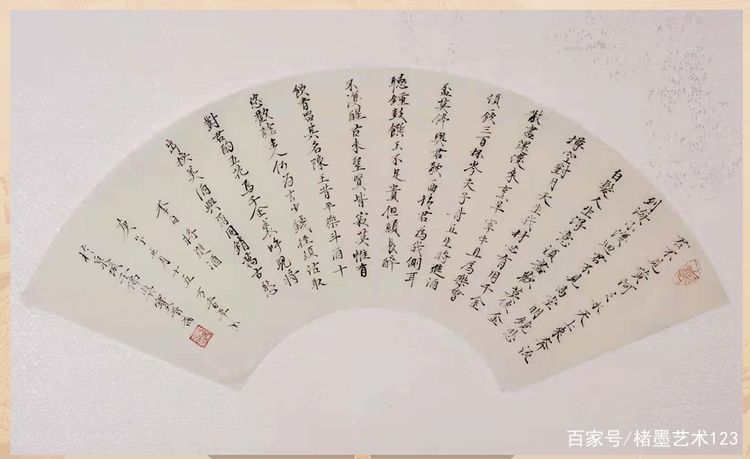 君不見黄河之水天上來奔流
到海不復回君不見高堂明鏡悲
白髮人生得意須盡歡莫使
樽空對月天生我材必有用千金
散盡還復來烹羊宰牛且為樂會
須飲三百杯岑夫子丹丘生將進酒
盃莫停與君歌一曲請君為我側耳
聽鐘鼓饌玉不足貴但願長醉
不復醒古來聖賢皆寂寞惟有
飲者留其名陳王昔平樂斗酒十
恣歡謔主人何為言少錢徑須沽取
對君酌五花馬千金裘呼兒將
出換美酒與爾同銷萬古愁
李白將進酒
庚子年七月十五
百家号/楮墨艺术123